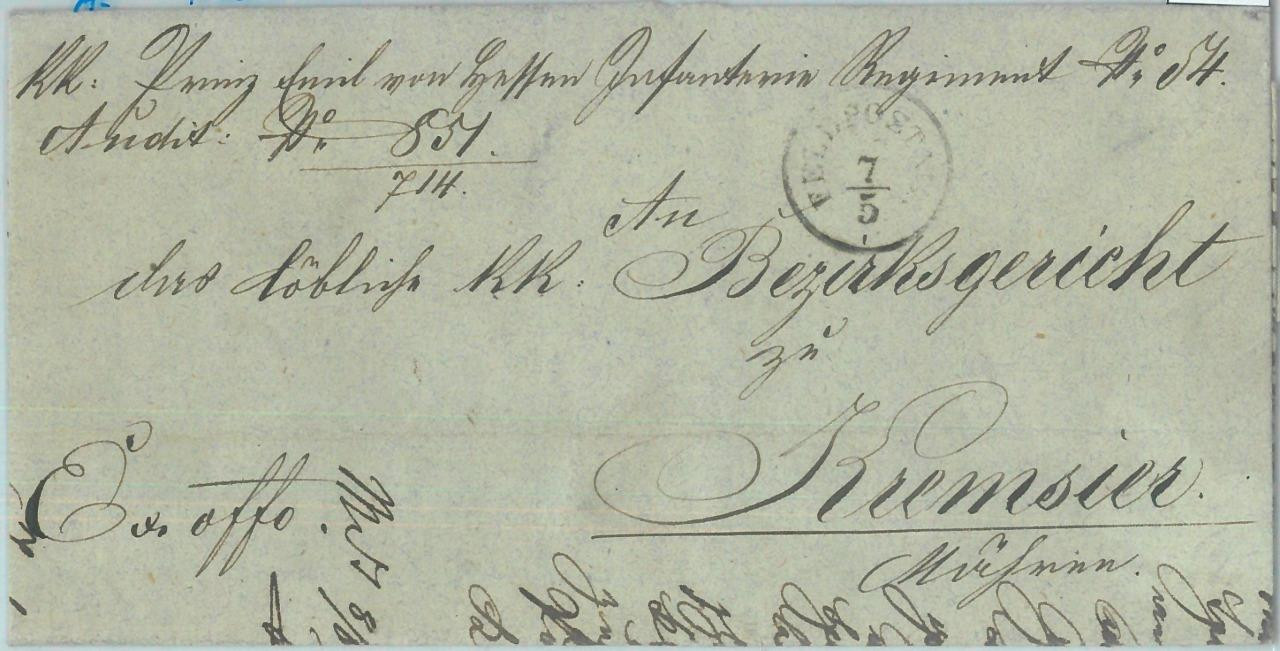 KK: Prinz Emil von Hessen Infanterie Regiment No. 54.
Audit: No. 851.
714.
FELDPOST
7
5
An
das löbliche KK: Bezirksgericht
zu
Kremsier.
Mähren.
Ex offo.